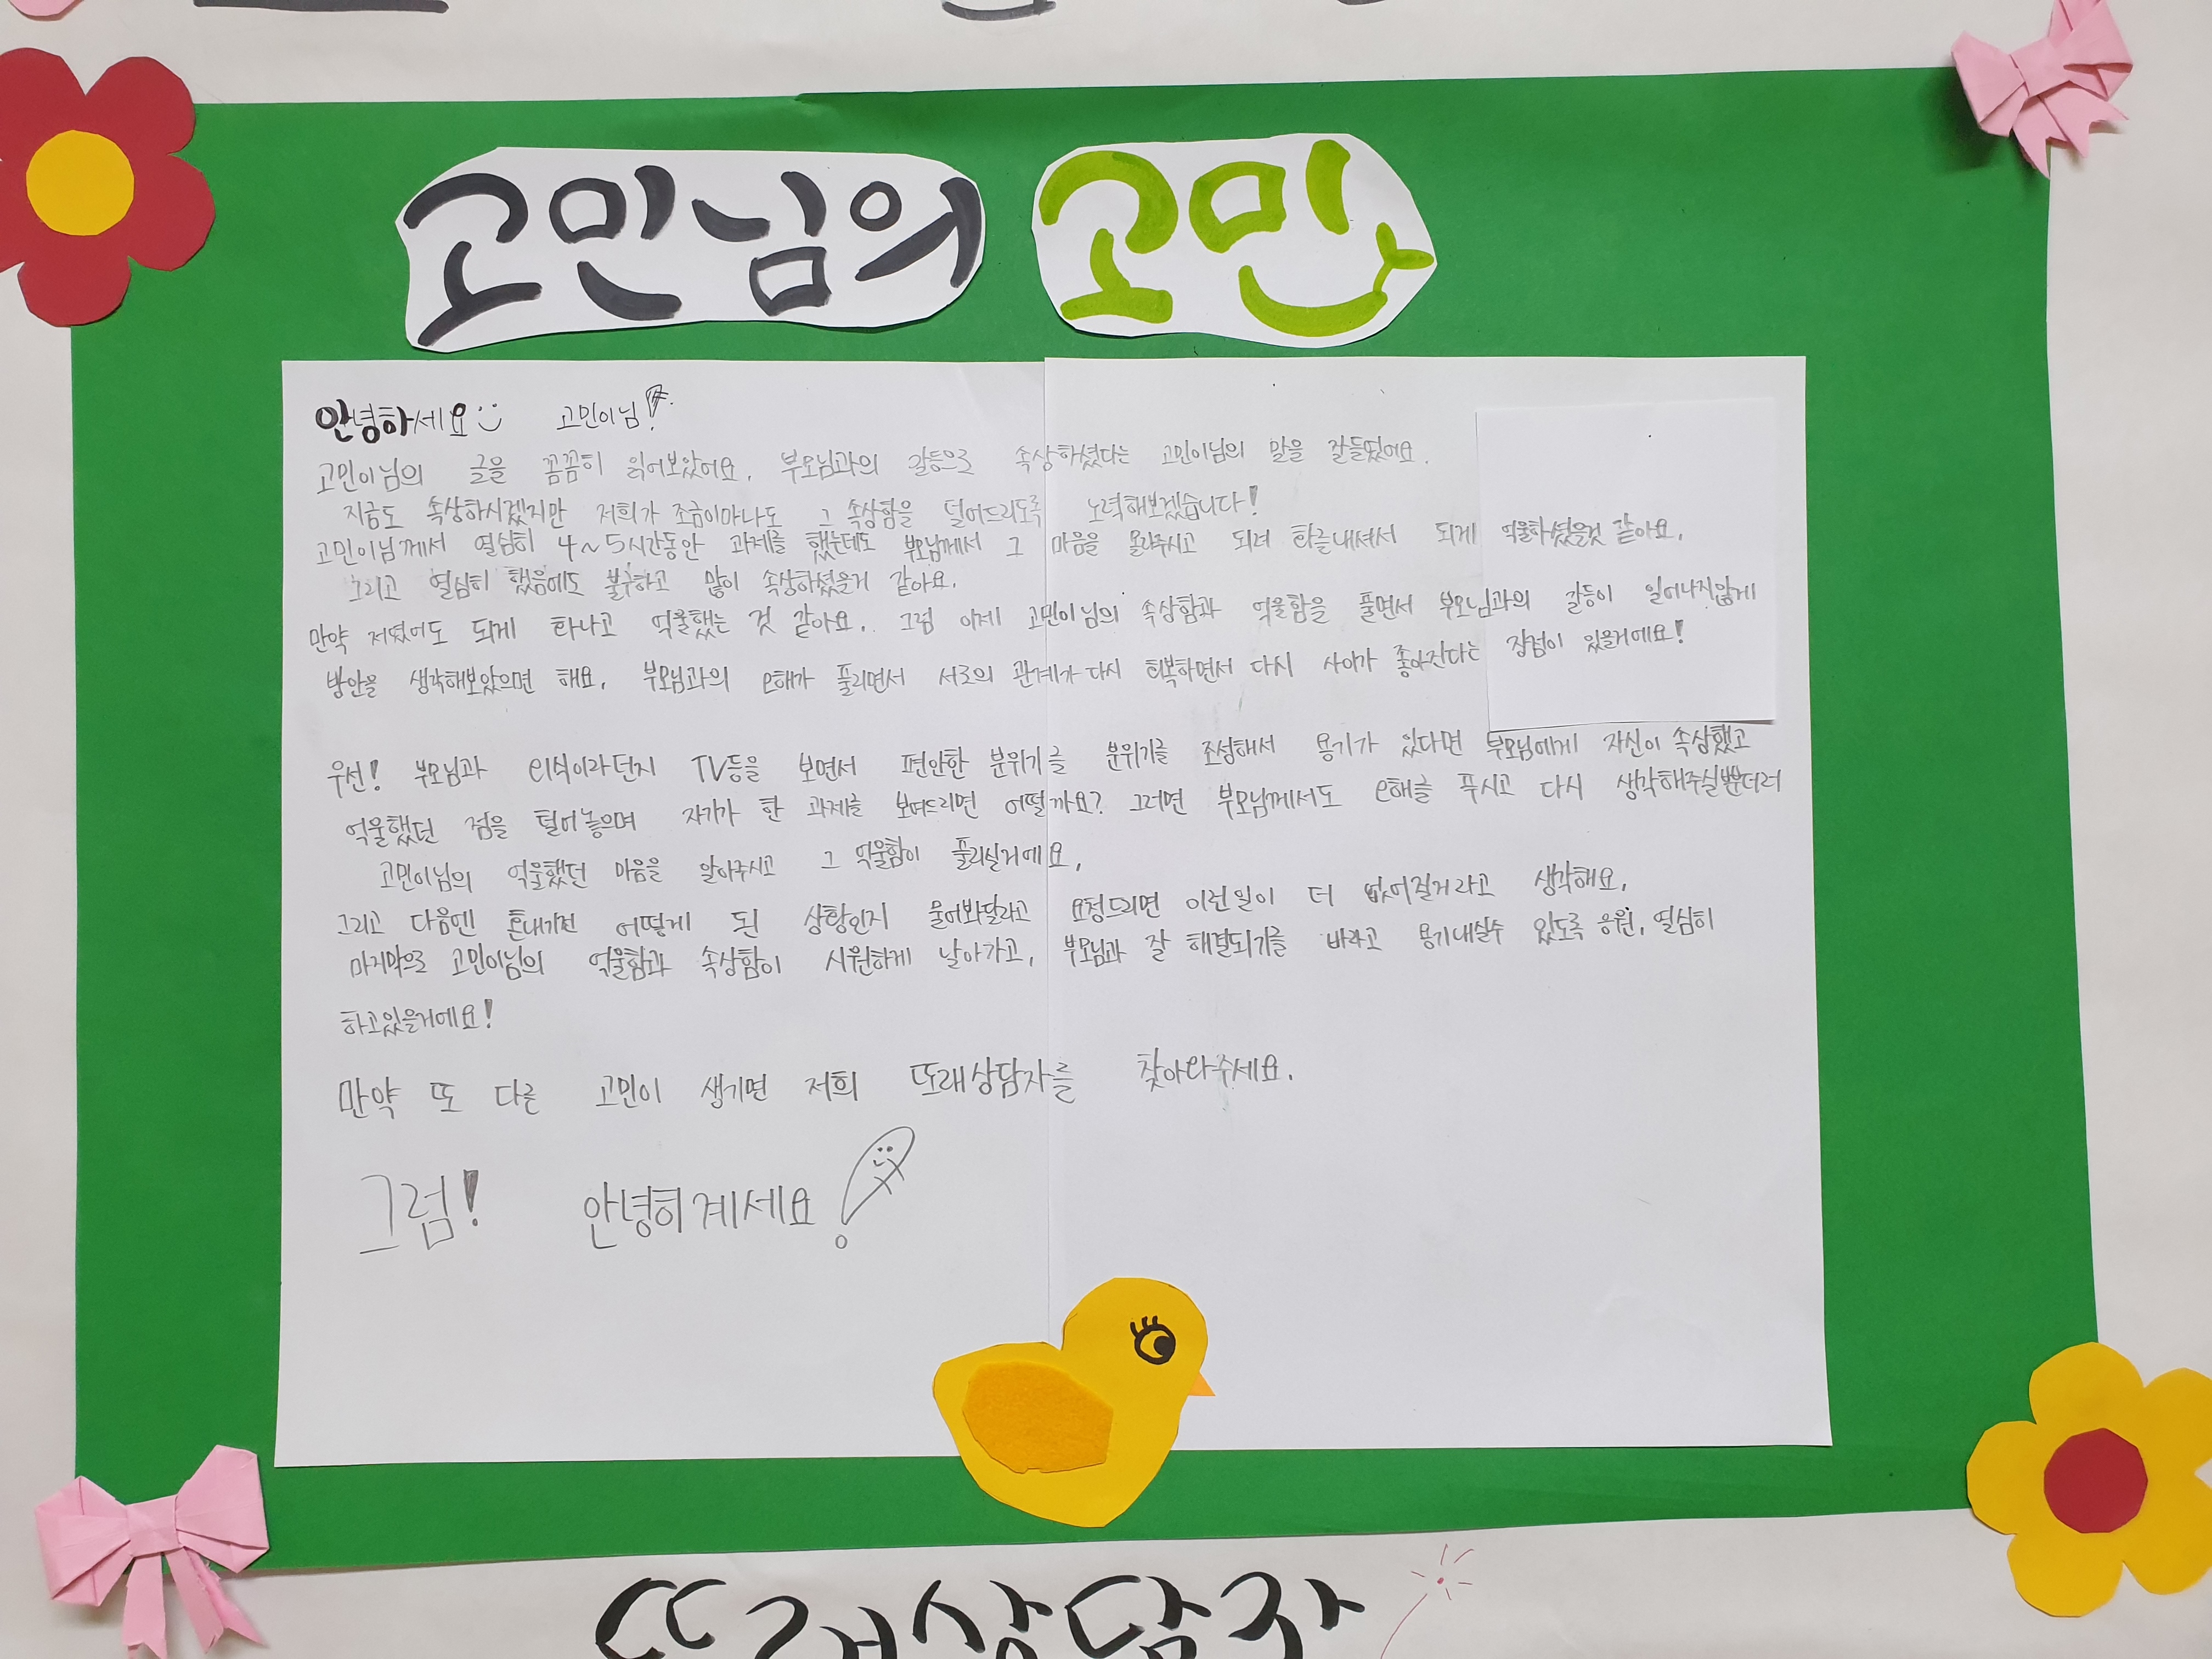 고민님의 고민
안녕하세요 고민이님!
고민이님의 글을 꼼꼼히 읽어보았어요. 부모님과의 갈등으로 속상하셨다는 고민이님의 말을 잘들었어요.
지금도 속상하시겠지만 저희가 조금이마나도 그 속상함을 덜어드리도록 노력해보겠습니다!
고민이님께서 열심히 4~5시간동안 과제를 했는데도 부모님께서 그 마음을 몰라주시고 되려 화를내셔서 되게 억울하셨을것 같아요.
그리고 열심히 했음에도 불구하고 많이 속상하셨을거 같아요.
만약 저였어도 되게 화나고 억울했는 것 같아요. 그럼 이제 고민이님의 속상함과 억울함을 풀면서 부모님과의 갈등이 일어나지않게
방안을 생각해보았으면 해요. 부모님과의 오해가 풀리면서 서로의 관계가 다시 회복하면서 다시 사이가 좋아진다는 장점이 있을거에요!
우선! 부모님과 외식이라던지 TV등을 보면서 편안한 분위기를 분위기를 조성해서 용기가 있다면 부모님에게 자신이 속상했고
억울했던 점을 털어놓으며 자기가 한 과제를 보여드리면 어떨까요? 그러면 부모님께서도 오해를 푸시고 다시 생각해주실뿐더러
고민이님의 억울했던 마음을 알아주시고 그 억울함이 풀리실거에요.
그리고 다음엔 혼내기전 어떻게 된 상황인지 물어봐달라고 요청드리면 이런일이 더 없어질거라고 생각해요.
마지막으로 고민이님의 억울함과 속상함이 시원하게 날아가고, 부모님과 잘 해결되기를 바라고 용기내실수 있도록 응원, 열심히
하고있을거에요!
만약 또 다른 고민이 생기면 저희 또래상담자를 찾아와주세요.
그럼! 안녕히계세요!
또래상담자